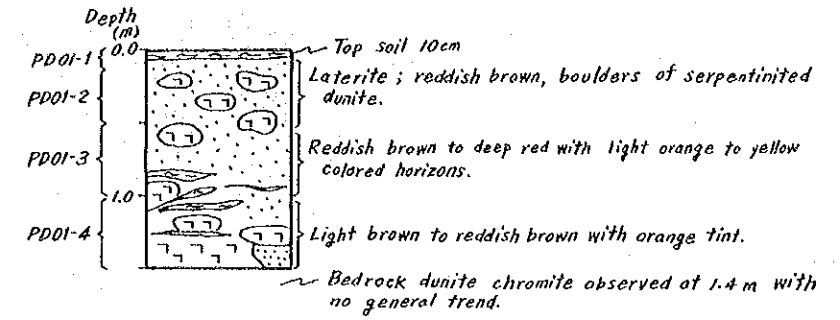 Depth
(m)
0.0
Top soil 10cm
PD01-1
Laterite ; reddish brown, boulders of serpentinited
dunite.
PD01-2
Reddish brown to deep red with light orange to yellow
colored horizons.
PD01-3
1.0
PD01-4
Light brown to reddish brown with orange tint.
Bedrock dunite chromite observed at 1.4 m with
no general trend.